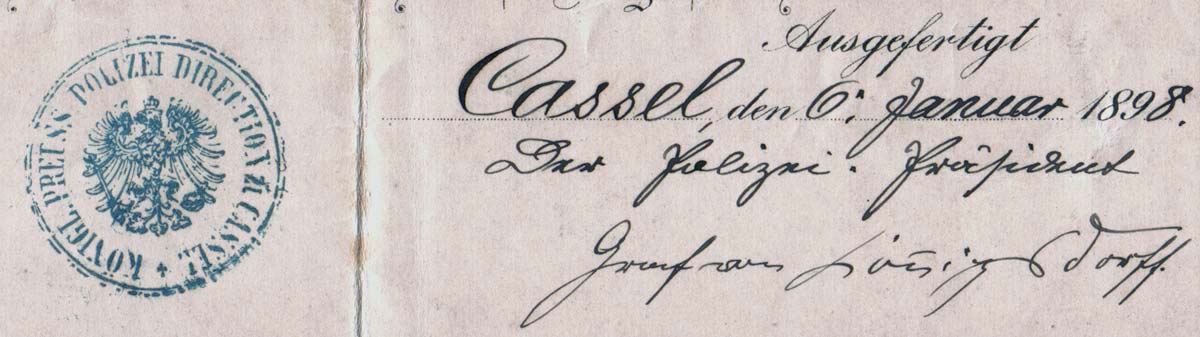 KÖNIGL. PREUSS. POLIZEI DIRECTION ZU CASSEL
Ausgefertigt
Cassel, den 6. Januar 1898.
Der Polizei-Präsident
Graf von Königsdorff.